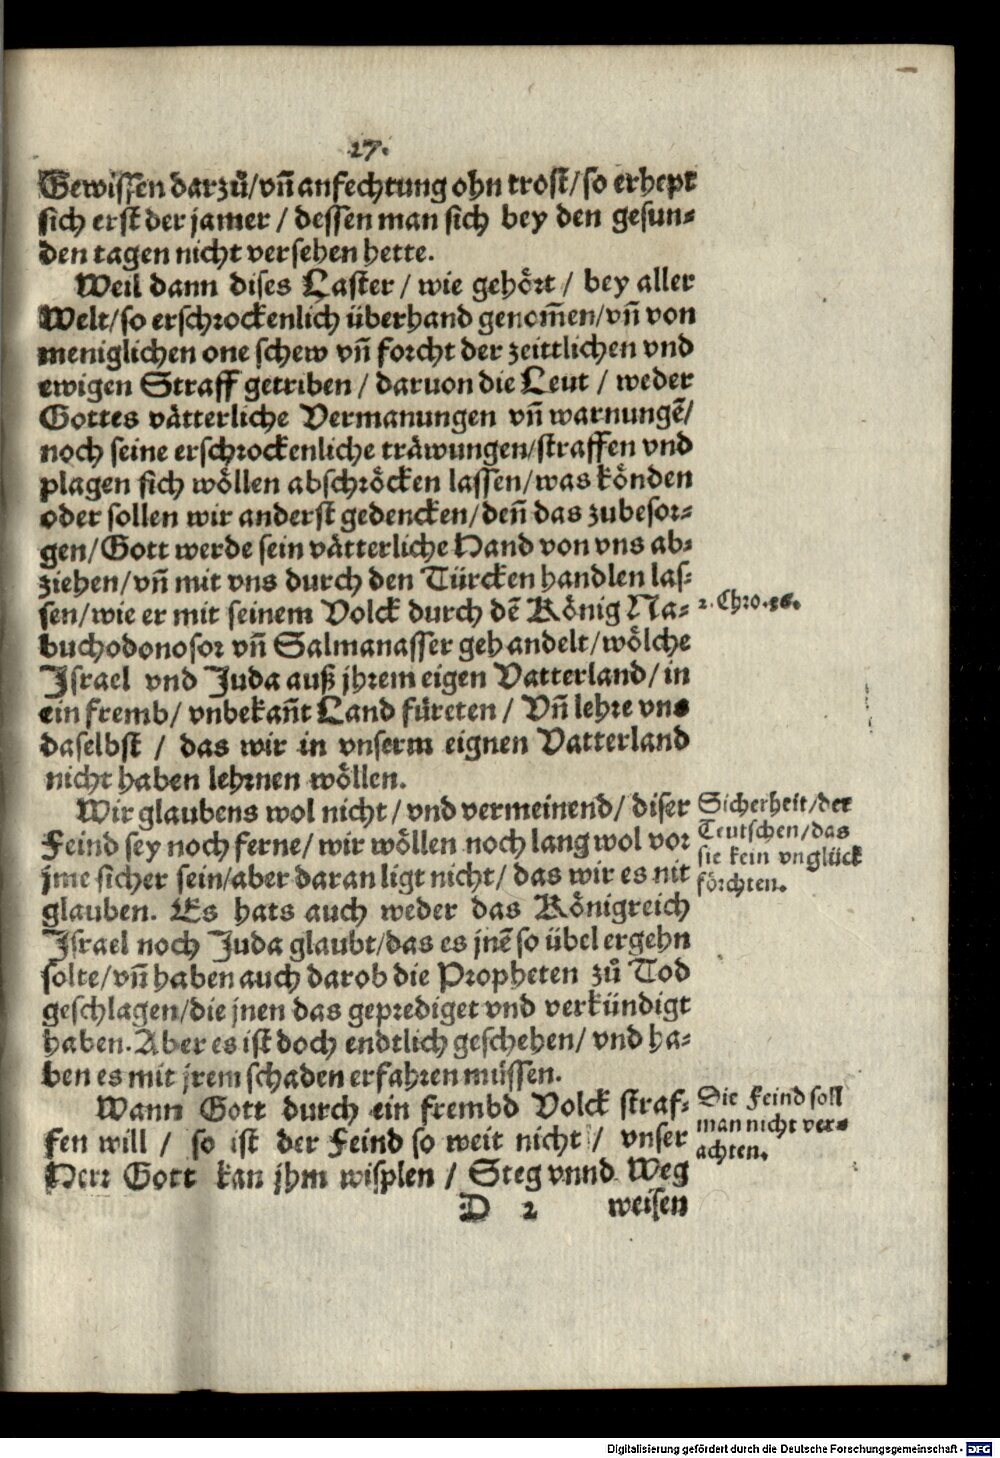 27.
Gewissen darzů/vñ anfechtung ohn trost/so erhept
sich erst der jamer / dessen man sich bey den gesun-
den tagen nicht versehen hette.
Weil dann dises Laster / wie gehört / bey aller
Welt/so erschrockenlich überhand genom̃en/vñ von
meniglichen one schew vñ forcht der zeittlichen vnd
ewigen Straff getriben / daruon die Leut / weder
Gottes vätterliche Vermanungen vñ warnungẽ/
noch seine erschrockenliche träwungen/straffen vnd
plagen sich wöllen abschröcken lassen/was könden
oder sollen wir anderst gedencken/deñ das zubesor-
gen/Gott werde sein vätterliche Hand von vns ab-
ziehen/vñ mit vns durch den Türcken handlen las-
sen/wie er mit seinem Volck durch dẽ König Na-
2. Chro. 36.
buchodonosor vñ Salmanasser gehandelt/wölche
Israel vnd Juda auß jhrem eigen Vatterland/in
ein fremb/ vnbekañt Land füreten / Vñ lehre vns
daselbst / das wir in vnserm eignen Vatterland
nicht haben lehrnen wöllen.
Wir glaubens wol nicht/vnd vermeinend/ diser
Feind sey noch ferne/wir wöllen noch lang wol vor
jme sicher sein/aber daran ligt nicht/ das wir es nit
glauben. Es hats auch weder das Königreich
Sicherheit/der
Teutschen/das
sie kein vnglück
förchten.
Israel noch Juda glaubt/das es jnẽ so übel ergehn
solte/vñ haben auch darob die Propheten zů Tod
geschlagen/die jnen das geprediget vnd verkündigt
haben. Aber es ist doch endtlich geschehen/ vnd ha-
ben es mit jrem schaden erfahren müssen.
Wann Gott durch ein frembd Volck straf-
fen will / so ist der Feind so weit nicht / vnser
Herr Gott kan jhm wisplen / Steg vnnd Weg
Die Feind soll
man nicht ver-
achten.
D 2 weisen
Digitalisierung gefördert durch die Deutsche Forschungsgemeinschaft - DFG